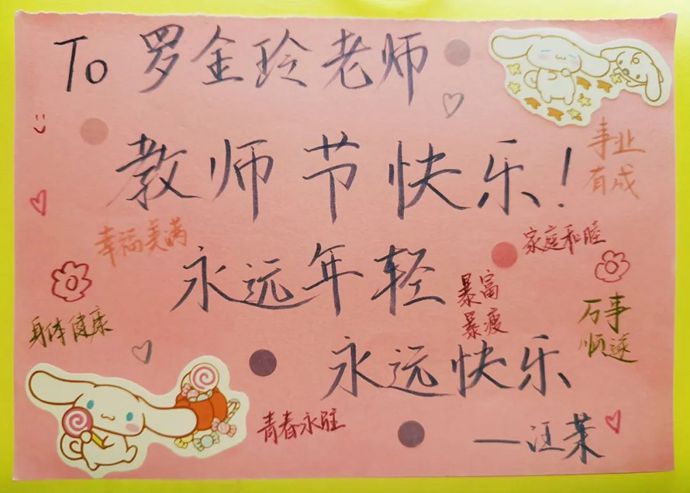 To 罗金玲老师
教师节快乐！
事业
有成
幸福美满
家庭和睦
永远年轻
暴富
暴瘦
万事
顺遂
身体健康
永远快乐
青春永驻
—汪茉